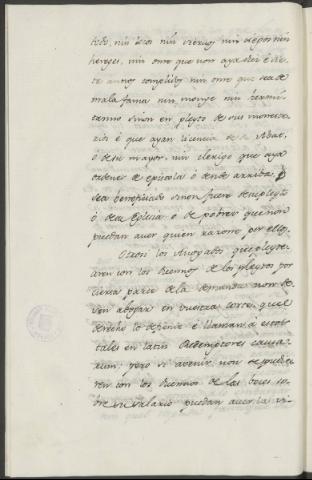 todo, nin ciego nin siervo, nin
hereges, nin ome que non aya diez é sie-
te annos complidos nin ome que sea de
mala fama nin monge nin hermi-
tanno sinon en pleyto de sus moneste-
rios é que ayan licencia de su Abat,
ó de su mayor, nin clerigo que aya
ordenes de epistola ó dende arriba, ó
sea beneficiado sinon fuere de su pleyto
ó de su Eglesia ó de pobres que non
puedan aver quien razone por ellos.
Otrosi los Avogados que pleyte-
aren con los Duennos de los pleytos por
cierta parte de la demanda non de-
ven abogar en vuestra corte, quel
derecho lo defiende é llaman a estos
tales en latin Redemptores causa-
rum; pero si avenir non se pudie-
ren con los Duennos de las boces so-
bre su salario puedan aver la vi-